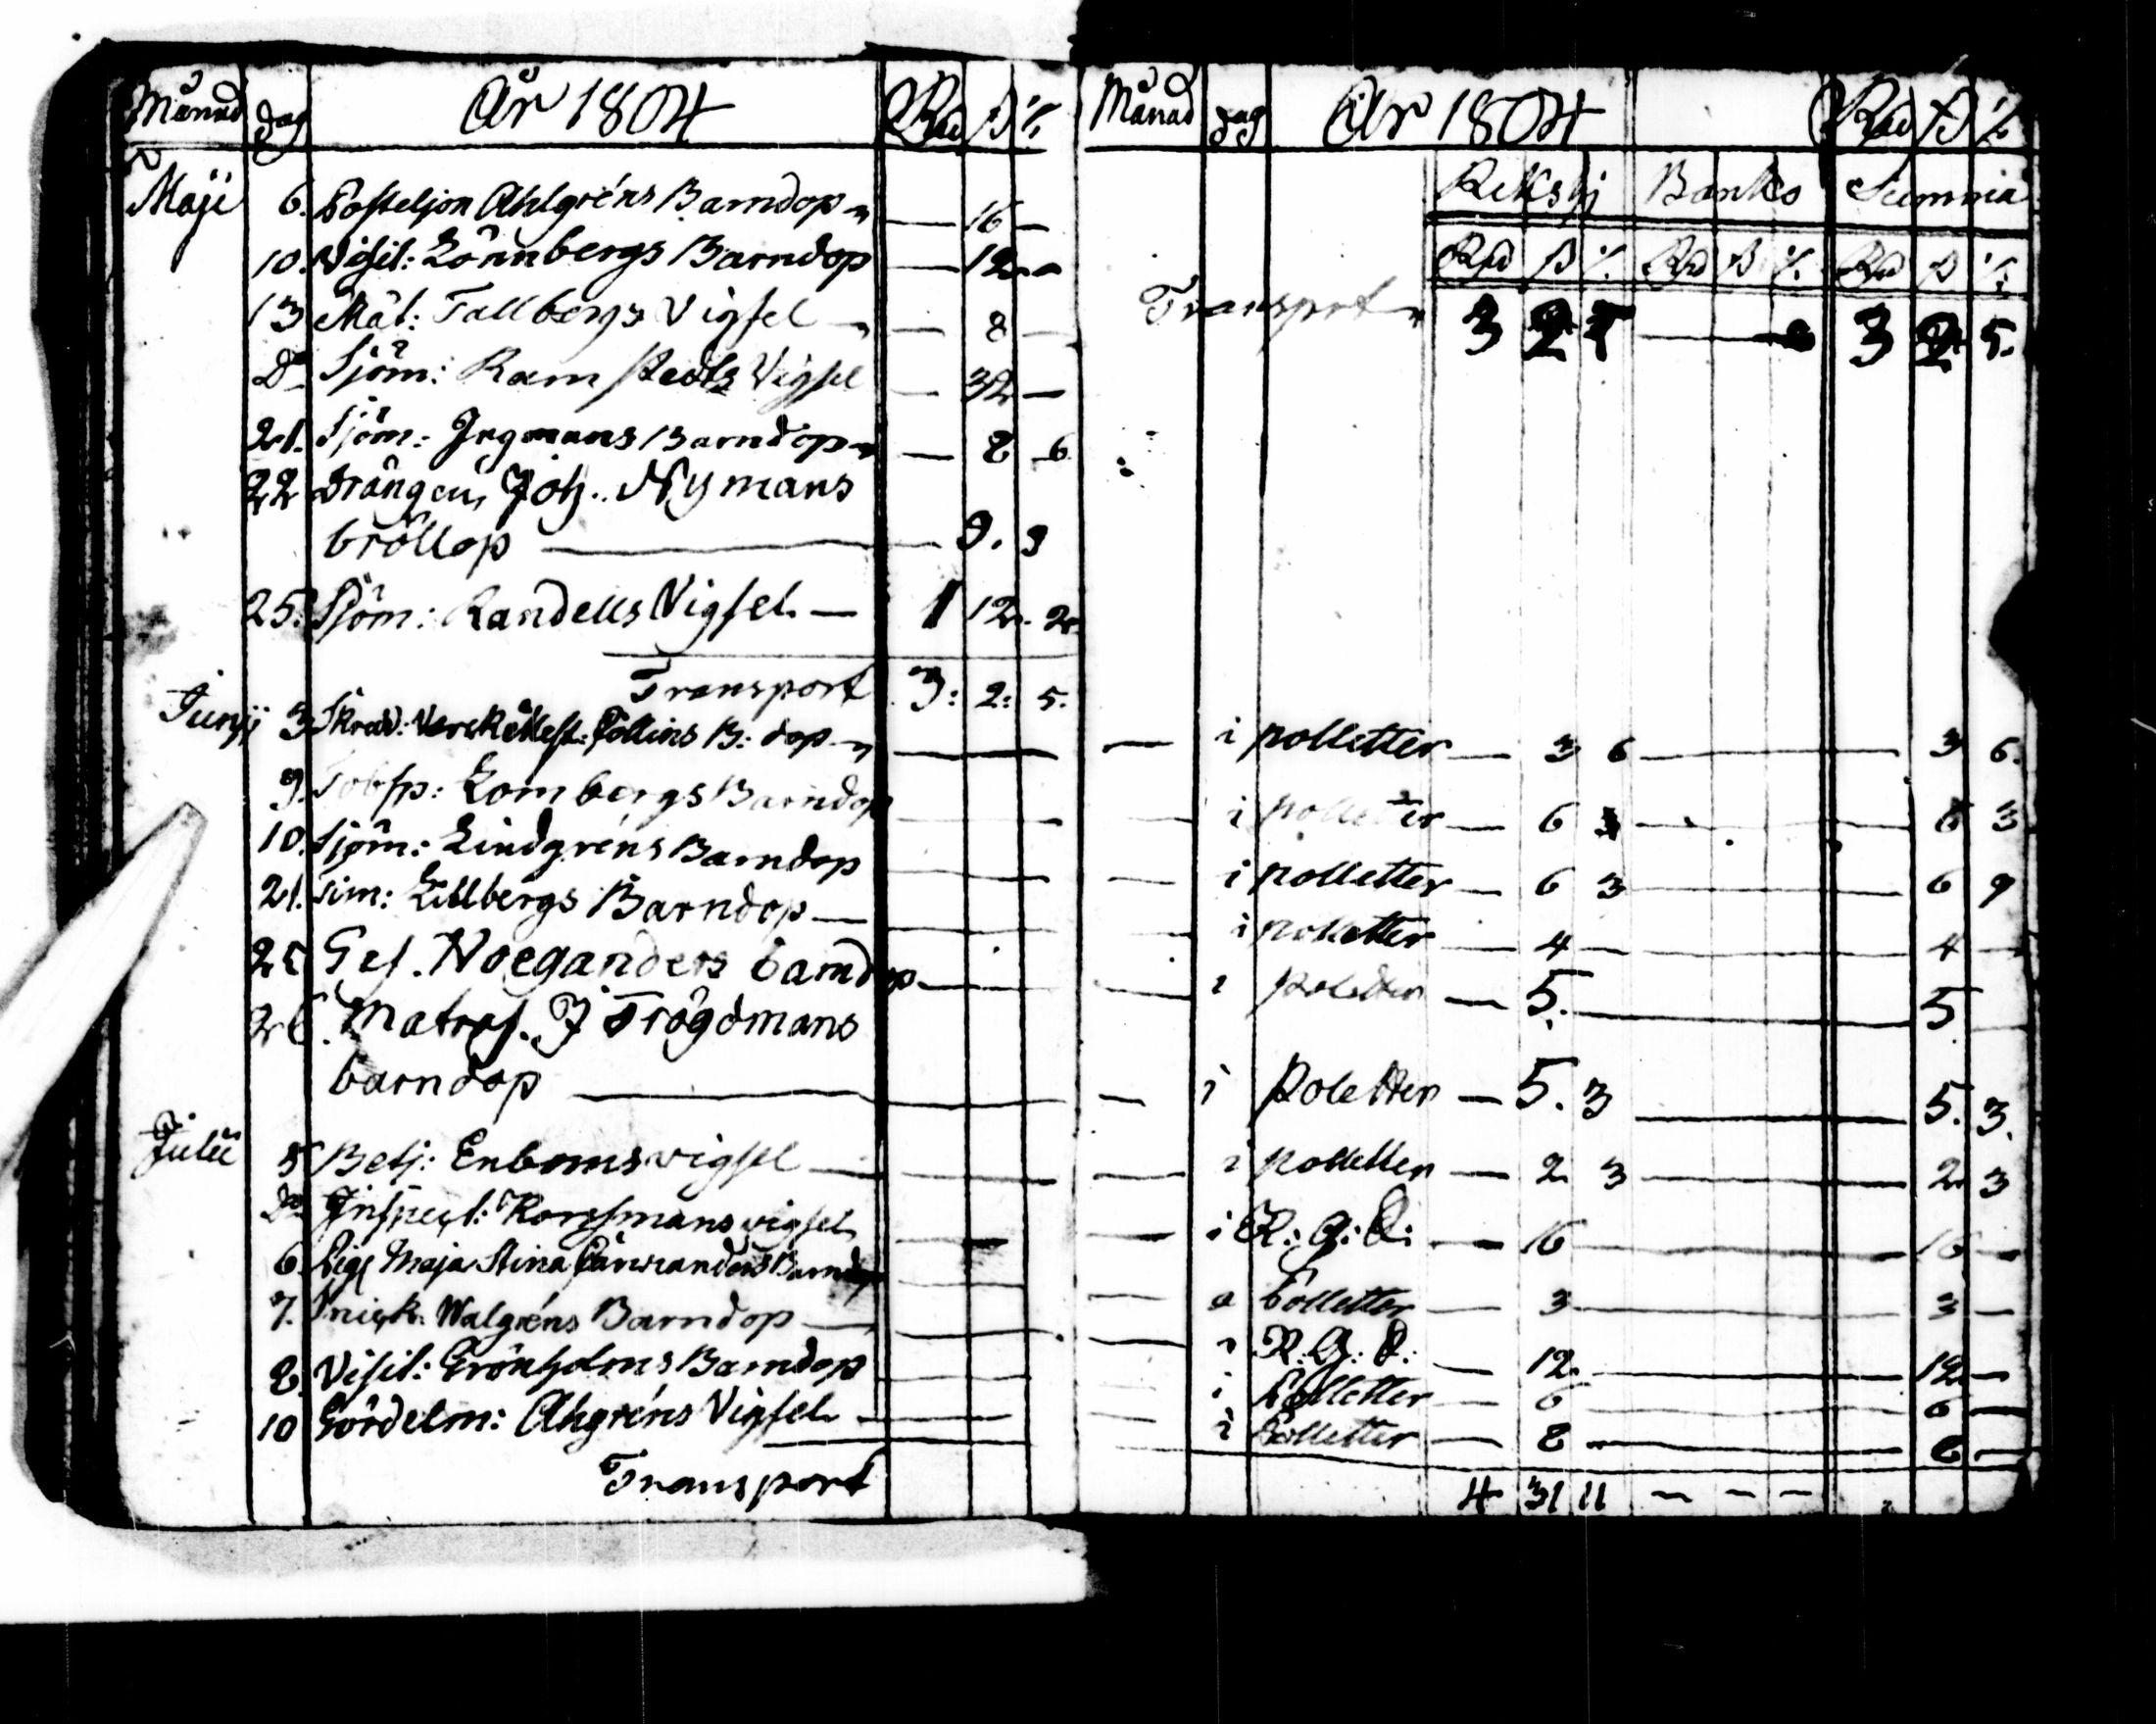 Månad dag År 1804 Rd ß %
Maji 6. Posteljon Ahlgréns Barndop — 16 —
10. Visit: Lönnbergs Barndop — 12 —
13 Mät: Tallbergs Vigsel — 8 —
Do Sjöm: Ramstedts Vigsel — 32 —
21. Sjöm: Ingmans Barndop — 8 6
22 Drängen Joh. Nymans
bröllop — 9. 9
25. Sjöm: Randells Vigsel — 1 12. 2.
Transport 3: 2: 5.
Junij 3 Skräd: Verck Mest: Collins B: dop —
9. Lombergs Barndop
10. Sjöm: Lindgréns Barndop
21. Tim: Lillbergs Barndop —
25 Gef. Noeganders barndop —
26. Matros. J Trögdmans
barndop —
Julii 5 Betj: Enboms vigsel —
Do Inspect: Korssmans vigsel
6. Pig Maja Stina Barndop
7. Walgréns Barndop —
8. Visit: Grönholms Barndop
10 Gördelm: Ahgréns Vigsel —
Transport
Månad dag År 1804 Rd ß %
Riksg Banko Summa
Rd ß % Rd ß % Rd ß %
Transport 3 2 — 3 2 5.
— i polletter — 3 6 — 3 6.
— i polletter — 6 3 — 6 3
— i polletter — 6 3 — 6 9
— i polletter — 4 — 4 —
— i poletter — 5. — 5
— i Poletter — 5. 3 — 5. 3.
— i polletter — 2 3 — 2 3
— i R: G: S: — 16 — 16 —
— a Polletter — 3 — 3 —
— i R: G: S: — 12. — 12 —
— i Polletter — 6 — 6 —
— i Polletter — 8 — 8 —
4 31 11 — — —